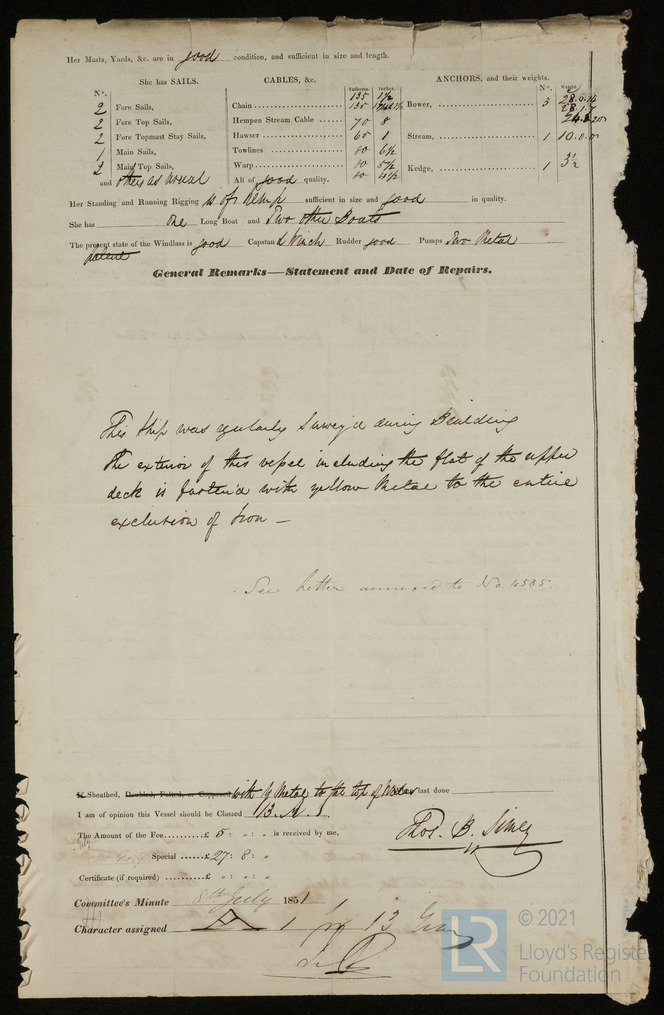 Her Masts, Yards, &c. are in good condition, and sufficient in size and length.
She has SAILS. CABLES, &c. ANCHORS, and their weights.
N°. Fathoms. Inches. N°. Weight
2 Fore Sails, Chain 135 1½ Bower, 3 28.0.14
2 Fore Top Sails, Hempen Stream Cable 70 8
2 Fore Topmast Stay Sails, Hawser 65 Stream, 1 10.0.0
1 Main Sails, Towlines 80 6½
2 Main Top Sails, Warp 80 5½ Kedge, 1 3½
and others as usual All of good quality. 80 4½
Her Standing and Running Rigging is of Hemp sufficient in size and good in quality.
She has one Long Boat and Two other Boats
The present state of the Windlass is good Capstan & Winch Rudder good Pumps Two Metal
patent
General Remarks—Statement and Date of Repairs.
This Ship was regularly Surveyed during Building
The exterior of this vessel including the flat of the upper
deck is fastened with yellow Metal to the entire
exclusion of Iron —
See Letter annexed to No. 4585
If Sheathed, Doubled, Felted, or Coppered with Y Metal to the top of Wales last done
I am of opinion this Vessel should be Classed 13. A. 1.
The Amount of the Fee £ 5 : „ : „ is received by me,
Thos. B. Simey
Special £ 27 : 8 : „
Certificate (if required) £ „ : „ : „
Committee's Minute 8th July 1851
Character assigned A 1 for 13 Years
LR © 2021
Lloyd's Register
Foundation